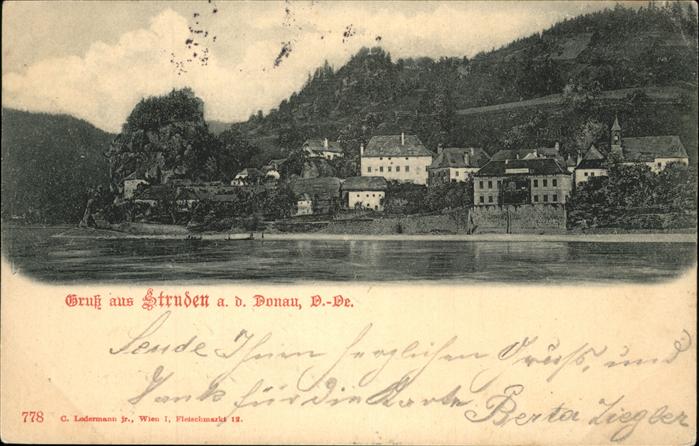 Gruß aus Struden a. d. Donau, O.-Oe.
Sende Ihnen herzlichen Gruss, und
Dank für die Karte Berta Ziegler
778 C. Ledermann jr., Wien I, Fleischmarkt 12.